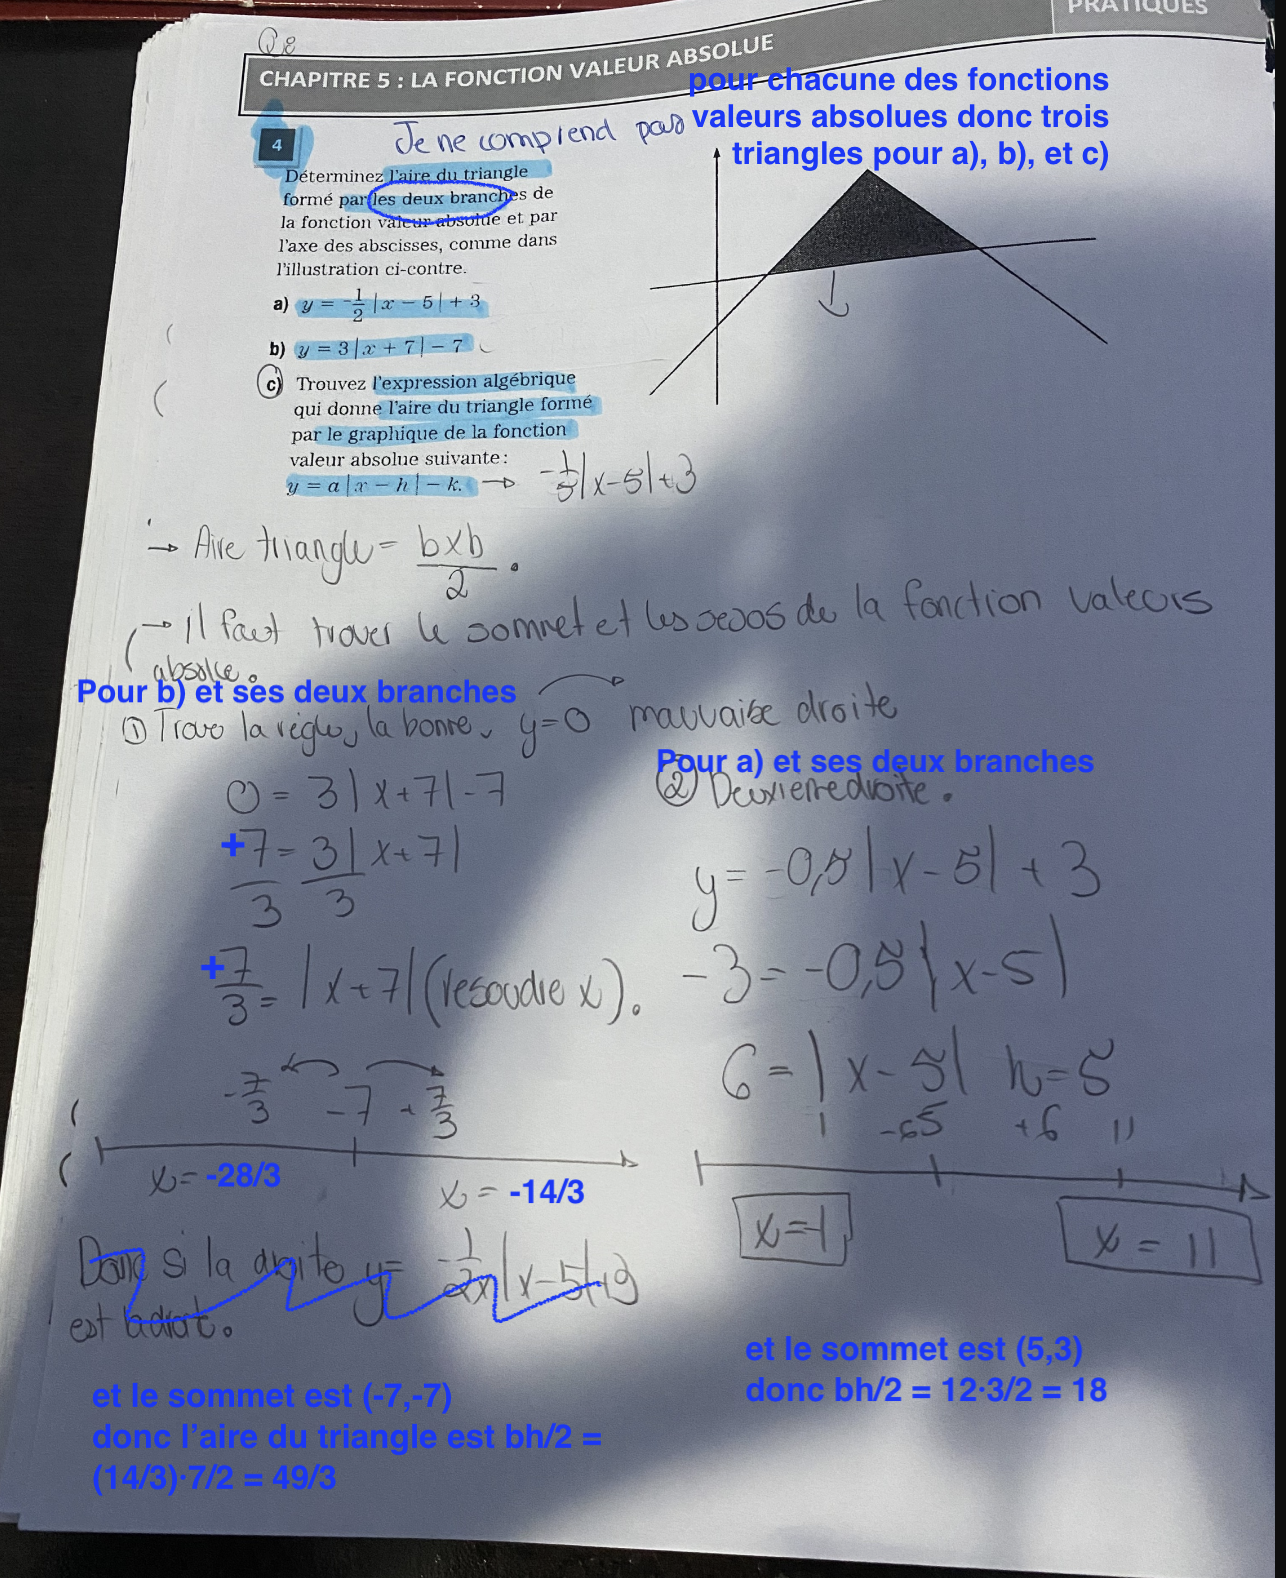 PRATIQUES
Q8
CHAPITRE 5 : LA FONCTION VALEUR ABSOLUE
pour chacune des fonctions
valeurs absolues donc trois
triangles pour a), b), et c)
4
Je ne comprend pas
Déterminez l'aire du triangle
formé par les deux branches de
la fonction valeur absolue et par
l'axe des abscisses, comme dans
l'illustration ci-contre.
a) y = -1/2 |x − 5| + 3
b) y = 3|x + 7| − 7
c) Trouvez l'expression algébrique
qui donne l'aire du triangle formé
par le graphique de la fonction
valeur absolue suivante :
y = a|x − h| − k. → -1/5|x-5|+3
→ Aire triangle = bxb/2 .
→ il faut trover le sommet et les zeros de la fonction valeurs
absolue.
Pour b) et ses deux branches
① Trove la règle, la bonne, y=0 mauvaise droite
0 = 3|x+7|-7
+7/3 = 3|x+7|/3
+7/3 = |x+7| (resoudre x).
-7/3 -7 +7/3
x = -28/3
x = -14/3
Donc si la droite y= -1/2x|x-5|+3
est ladroit.
et le sommet est (-7,-7)
donc l'aire du triangle est bh/2 =
(14/3)·7/2 = 49/3
Pour a) et ses deux branches
② Deuxieme droite.
y = -0,5|x-5|+3
-3 = -0,5|x-5|
6 = |x-5| h=5
-6 5 +6 11
x=-1
x = 11
et le sommet est (5,3)
donc bh/2 = 12·3/2 = 18